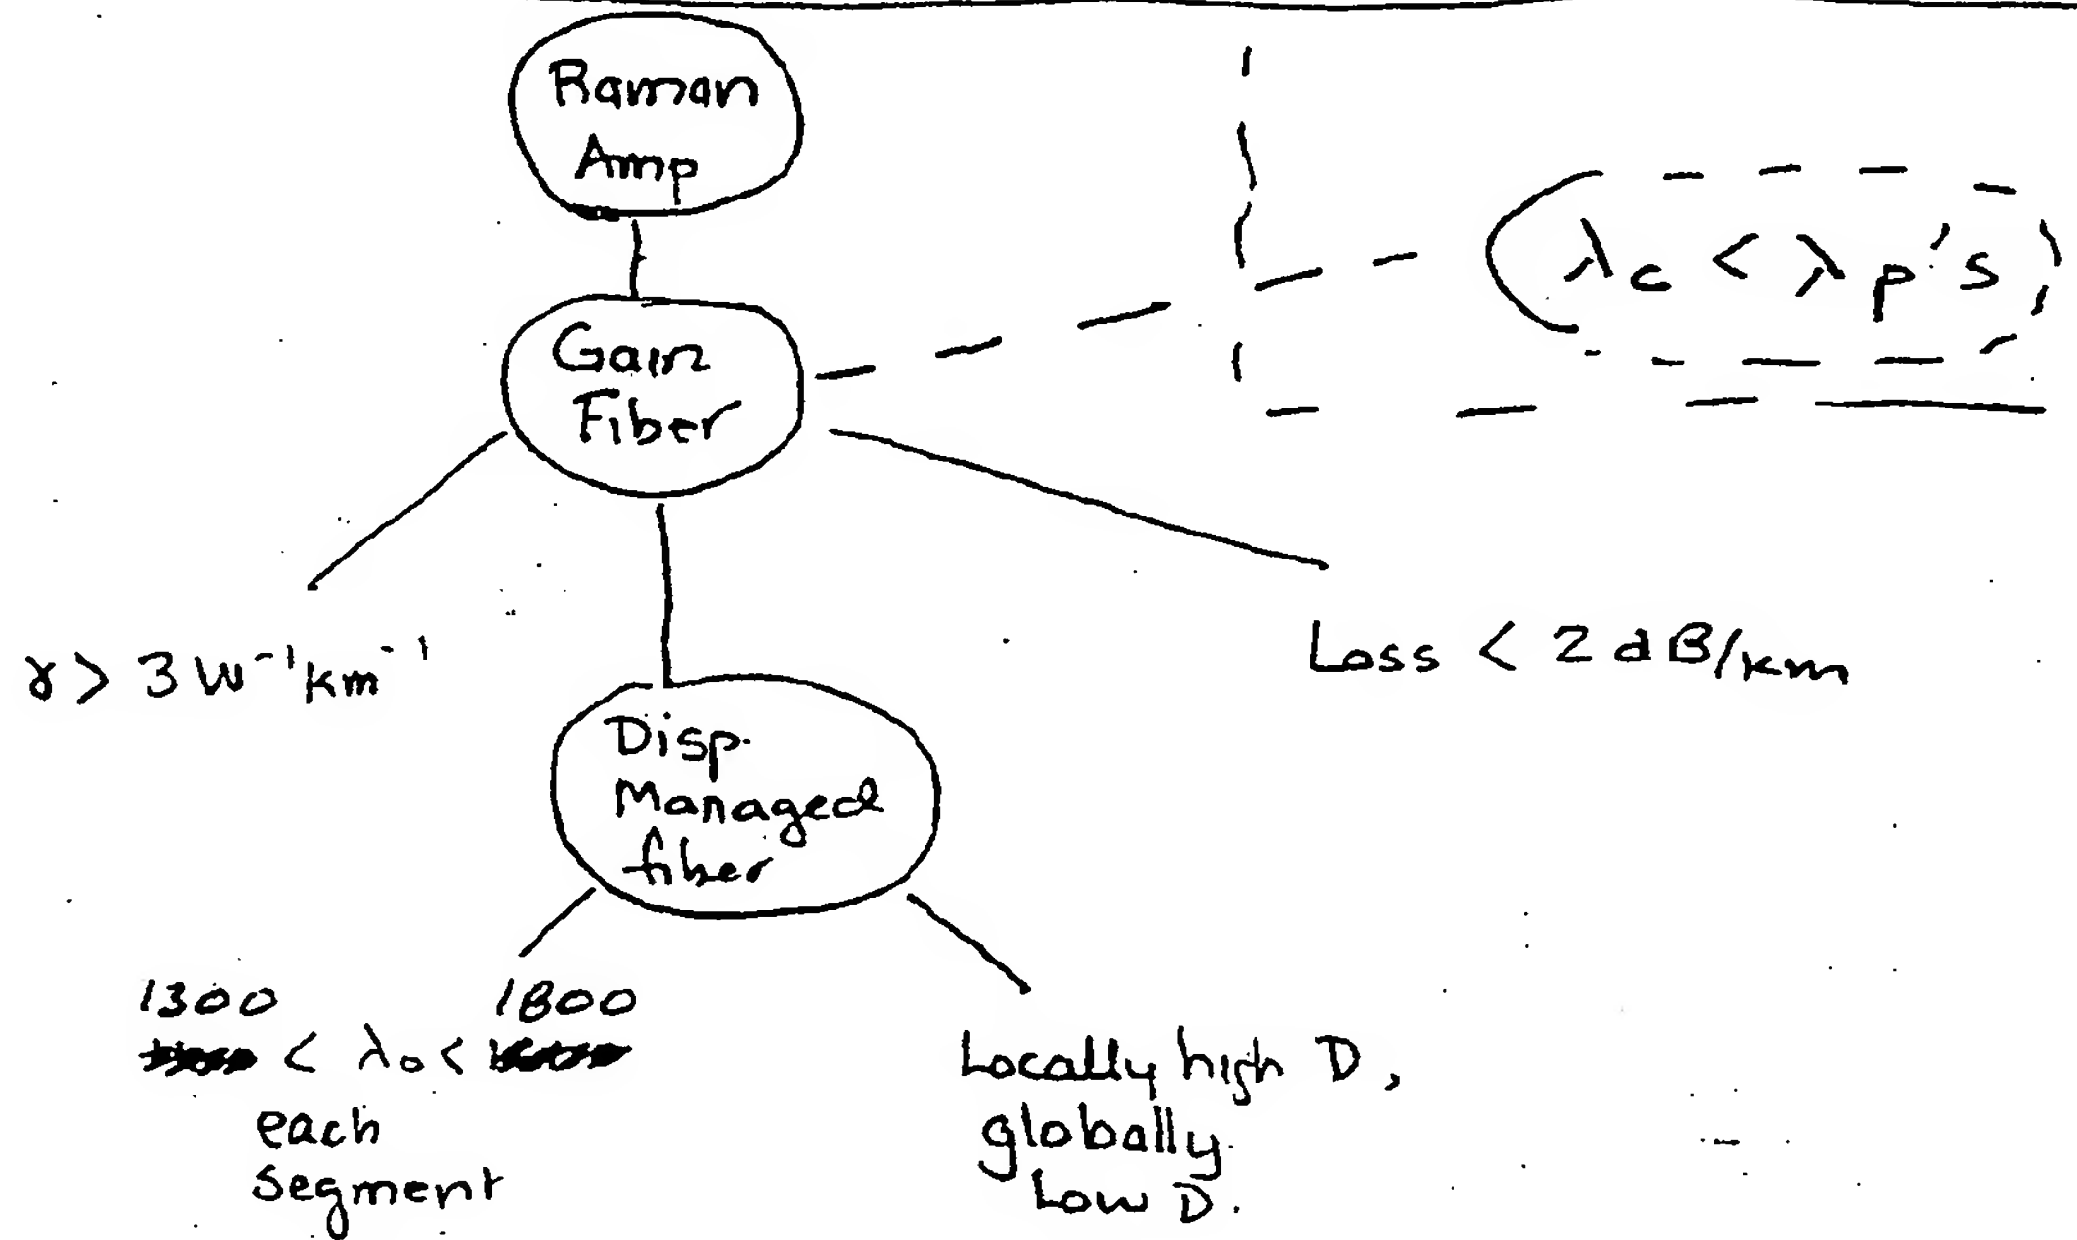 Raman
Amp
λc < λp's
Gain
Fiber
γ > 3 W⁻¹km⁻¹
Loss < 2 dB/km
Disp.
Managed
fiber
1300 1800
< λo <
each
segment
Locally high D,
globally
Low D.